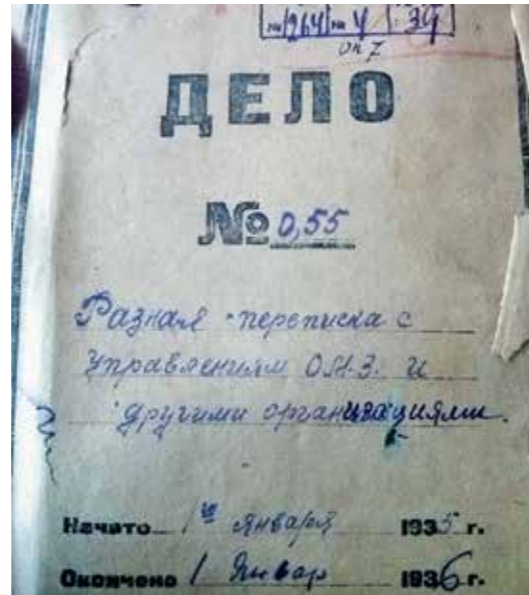 № 1264 № 4 39
оп 7
ДЕЛО
№ 0,55
Разная переписка с
управлениям О.Н.З. и
другими организациями.
Начато 1го января 1935 г.
Окончено 1 Январ 1936 г.